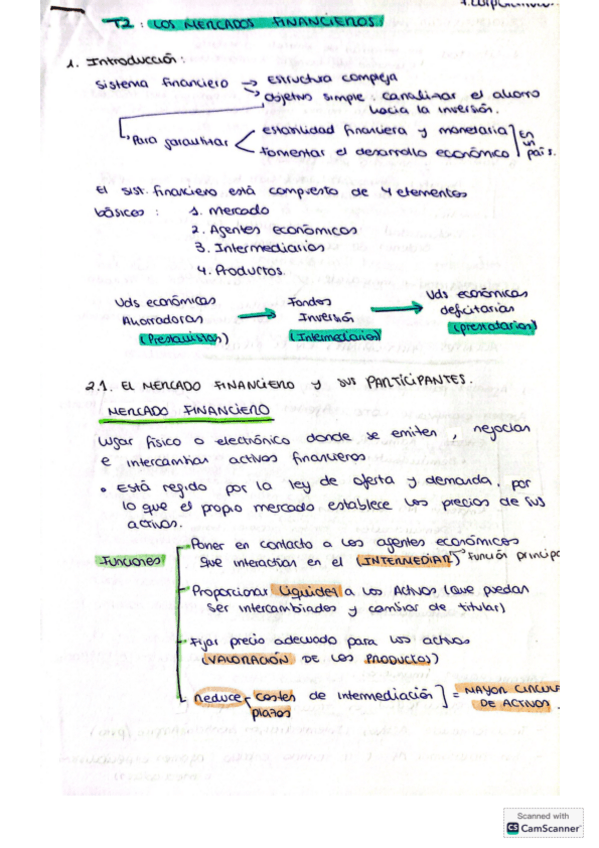 T2: LOS MERCADOS FINANCIEROS.
1. Introducción:
sistema financiero → estructura compleja
→ objetivo simple: canalizar el ahorro
hacia la inversión.
Para garantizar < estabilidad financiera y monetaria
fomentar el desarrollo económico
] En un país.
El sist. financiero está compuesto de 4 elementos
básicos: 1. Mercado
2. Agentes económicos
3. Intermediarios
4. Productos.
Uds económicas Ahorradoras (Prestamistas) → Fondos Inversión (Intermediarios) → Uds económicas deficitarias (prestatarios)
2.1. EL MERCADO FINANCIERO y SUS PARTICIPANTES.
MERCADO FINANCIERO
Lugar físico o electrónico donde se emiten, negocian
e intercambian activos financieros
• Está regido por la ley de oferta y demanda, por
lo que el propio mercado establece los precios de sus
activos.
Funciones
Poner en contacto a los agentes económicos
que interactúan en el (INTERMEDIAR) → Función princip
- Proporcionar liquidez a los Activos (que puedan
ser intercambiados y cambiar de titular)
- Fijar precio adecuado para los activos
(VALORACIÓN DE LOS PRODUCTOS)
Reduce - costes de intermediación ] = MAYOR CIRCUL
plazos
DE ACTIVOS.
Scanned with
CS CamScanner